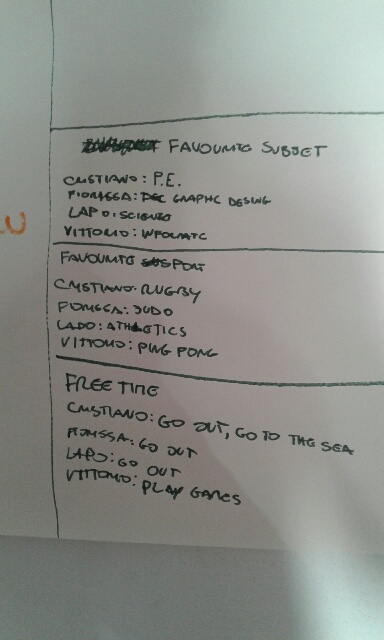 FAVOURITE SUBJET
CRISTIANO: P.E.
FIORESSA: GRAPHC DESING
LAPO: SCIENZE
VITTORIO: INFOMATC
FAVOURITE SPORT
CRISTIANO: RUGBY
FIORESSA: JUDO
LAPO: ATHLETICS
VITTORIO: PING PONG
FREE TIME
CRISTIANO: GO OUT, GO TO THE SEA
FIORESSA: GO OUT
LAPO: GO OUT
VITTORIO: PLAY GAMES